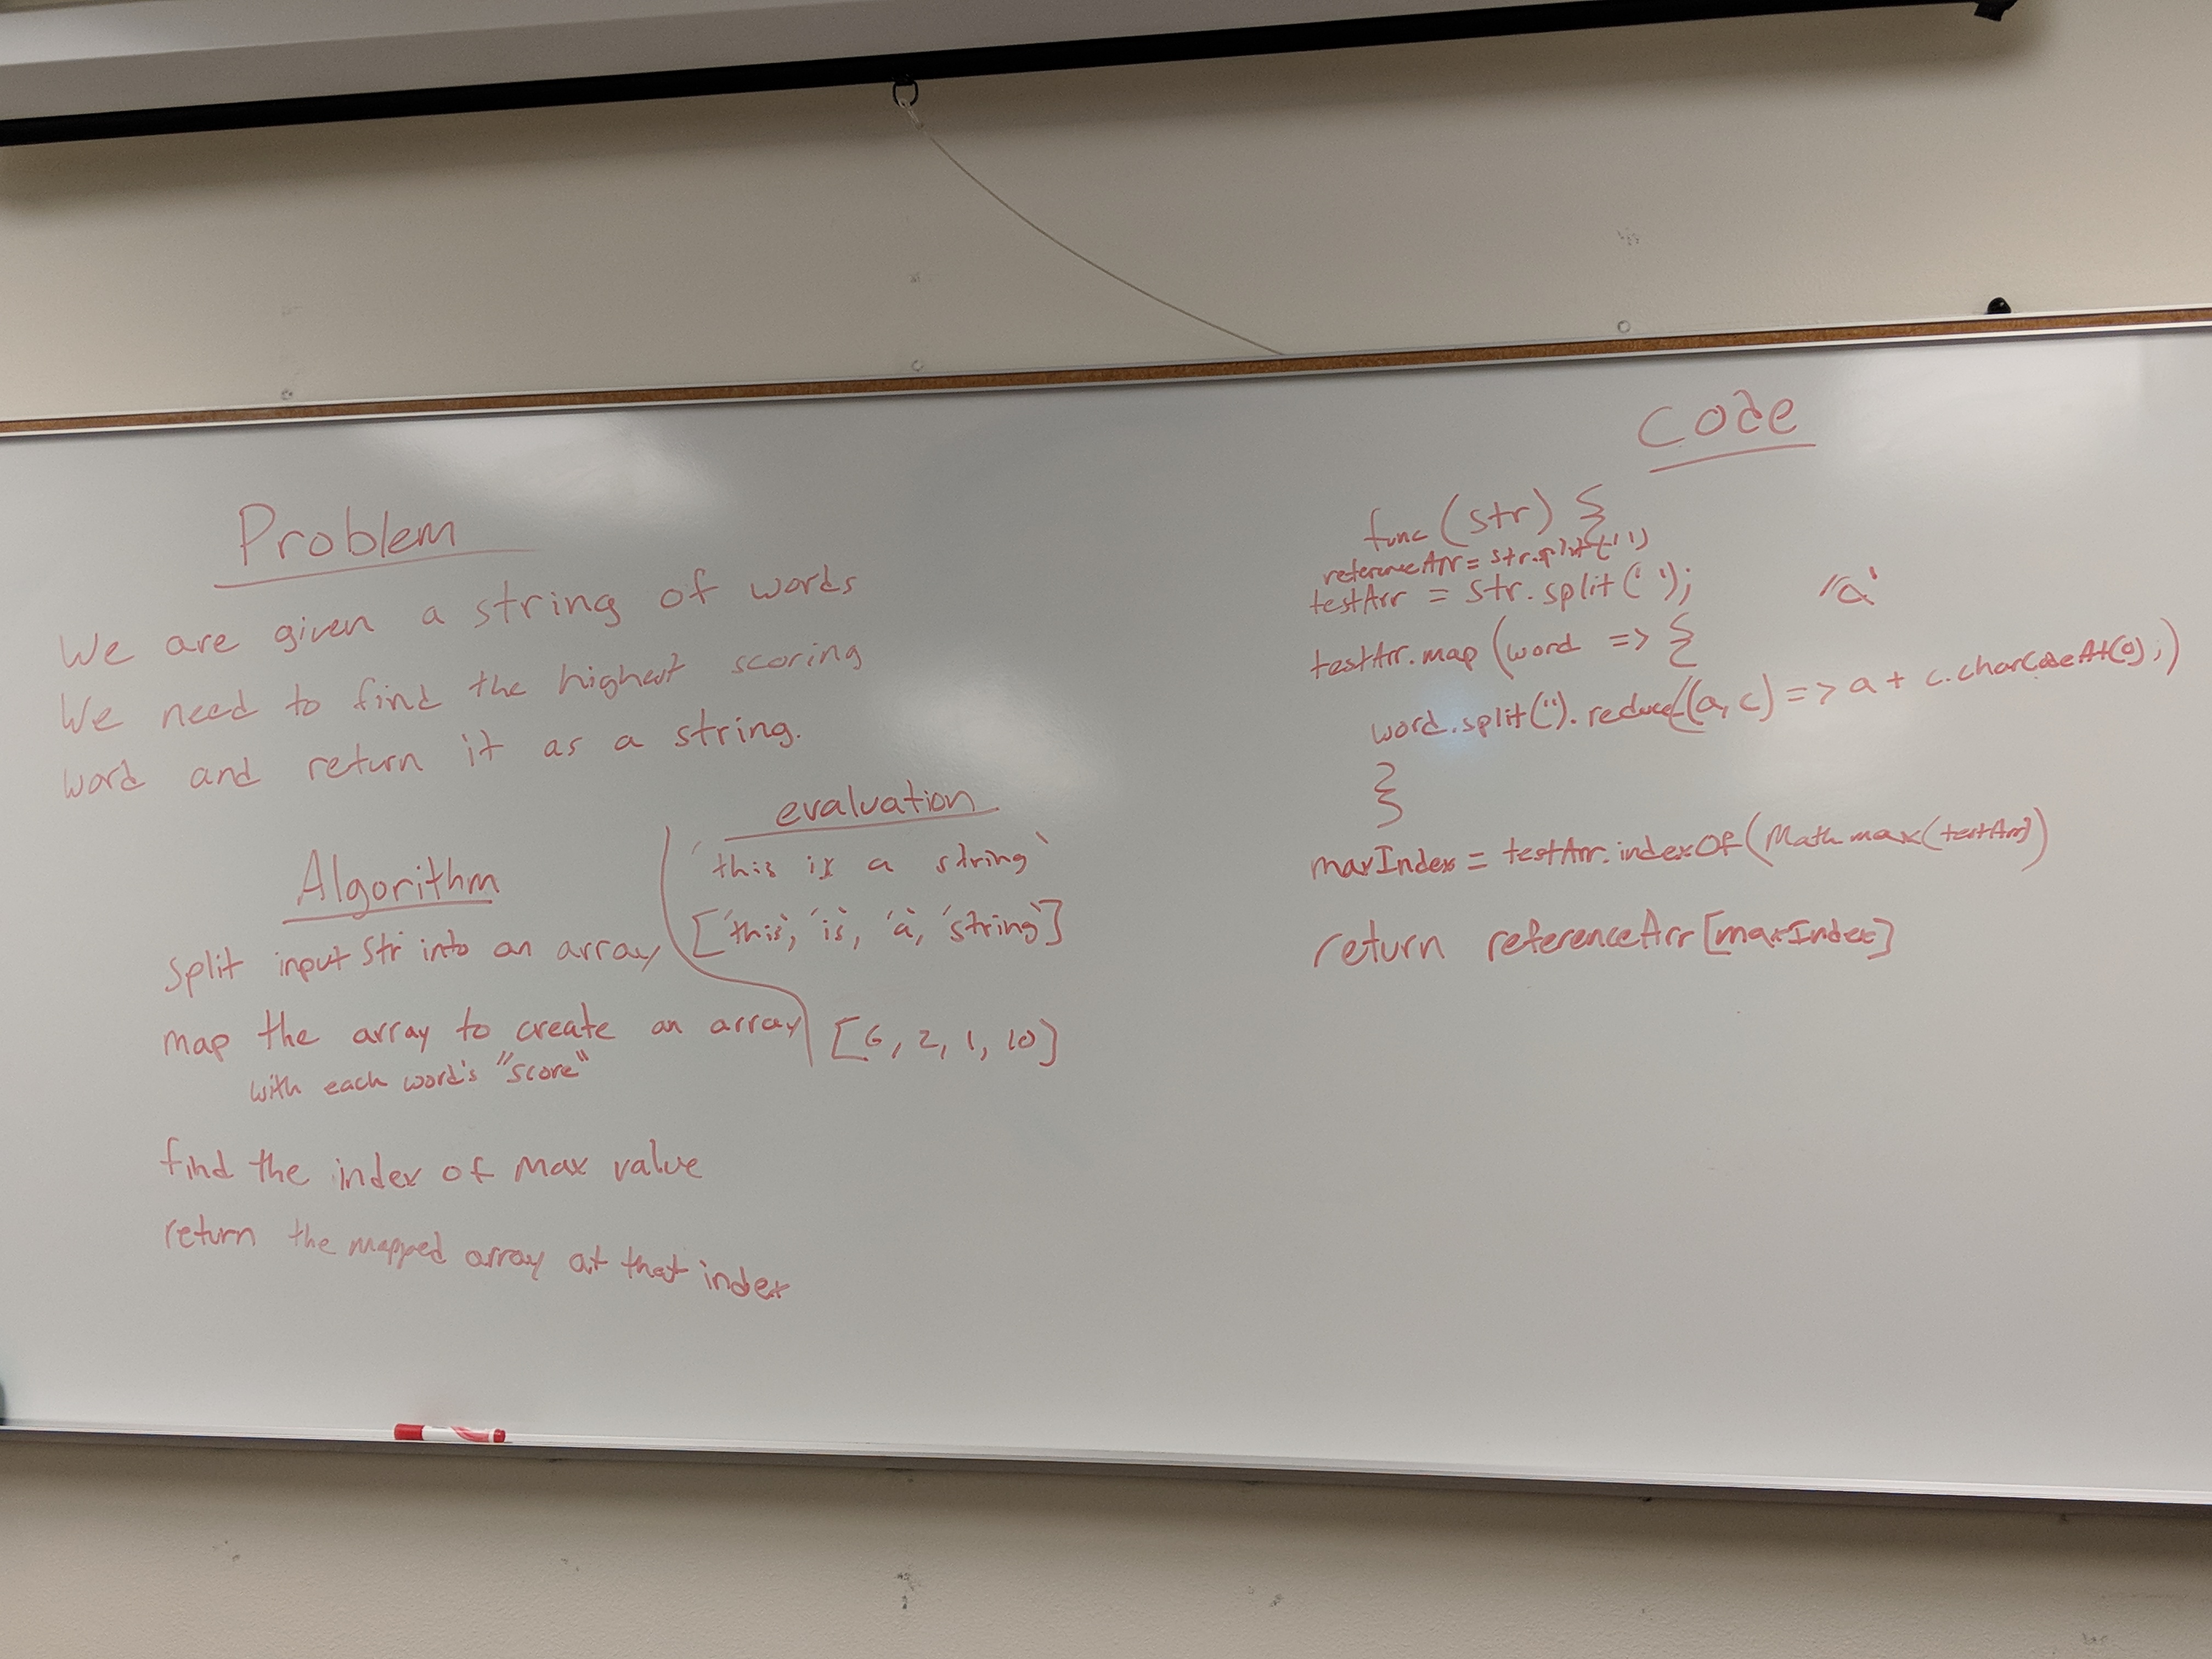 Problem
We are given a string of words
We need to find the highest scoring
word and return it as a string.
Algorithm
split input str into an array
map the array to create an array
with each word's "score"
find the index of max value
return the mapped array at that index
evaluation
'this is a string'
['this', 'is', 'a', 'string']
[6, 2, 1, 10]
Code
func (str) {
referenceArr = str.split(' ')
testArr = str.split(' ');
'a'
testArr.map (word => {
word.split('').reduce((a, c) => a + c.charCodeAt(0);)
}
maxIndex = testArr.indexOf(Math max(testArr))
return referenceArr[maxIndex]